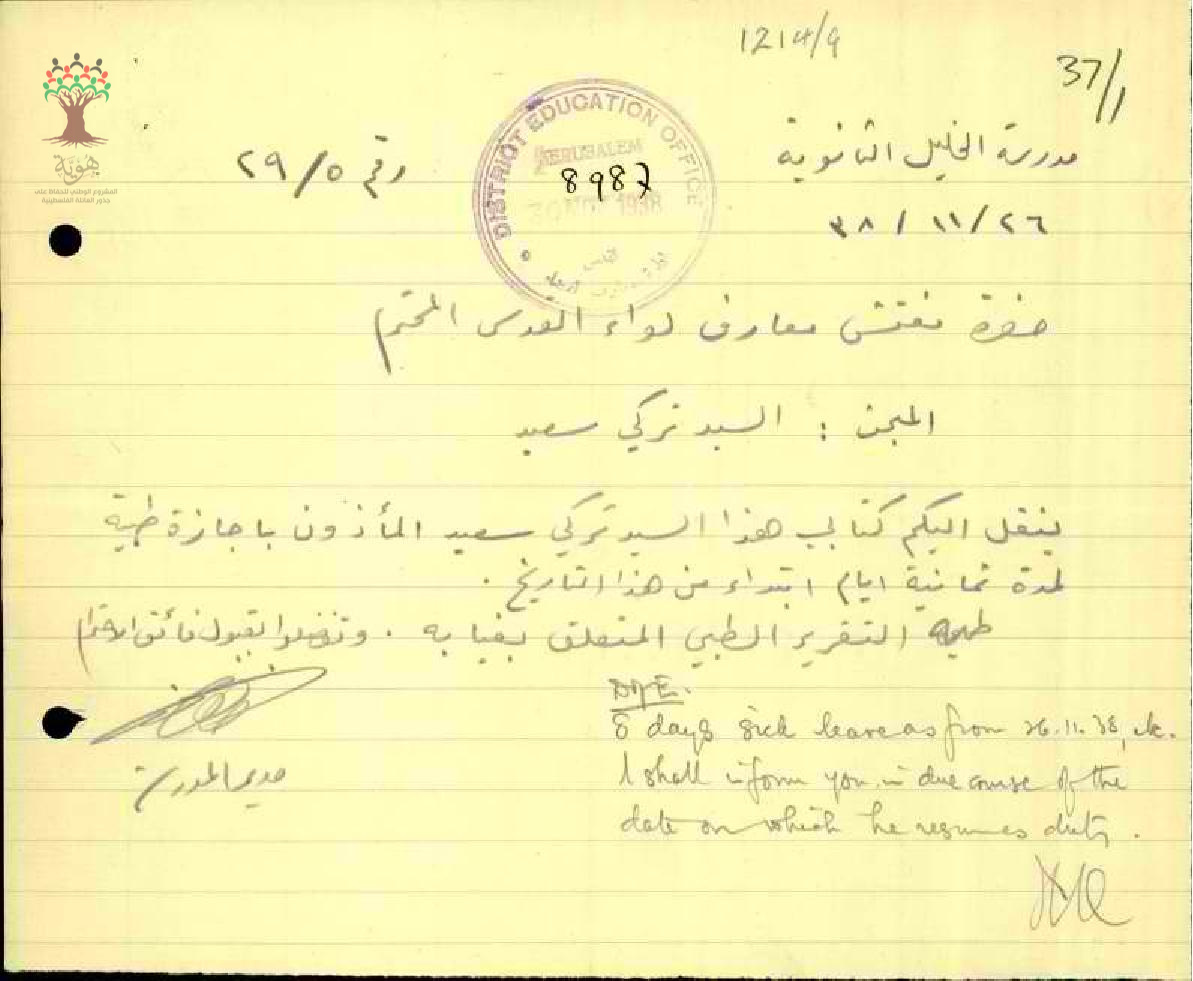 1214/9
37/1
هوية
المشروع الوطني للحفاظ على
جذور العائلة الفلسطينية
مدرسة الخليل الثانوية
رقم ٢٩/٥
DISTRICT EDUCATION OFFICE
JERUSALEM
8987
30 NOV 1938
القدس
٢٦/١١/٣٨
حضرة مفتش معارف لواء القدس المحترم
المبحث : السيد تركي سعيد
ينقل اليكم كتابي هذا السيد تركي سعيد المأذون باجازة طبية
لمدة ثمانية ايام ابتداء من هذا التاريخ .
طيه التقرير الطبي المتعلق بغيابه . وتفضلوا بقبول فائق الاحترام
مدير المدرسة
8 days sick leave as from 26.11.38,
I shall inform you in due course of the
date on which he resumes duty.